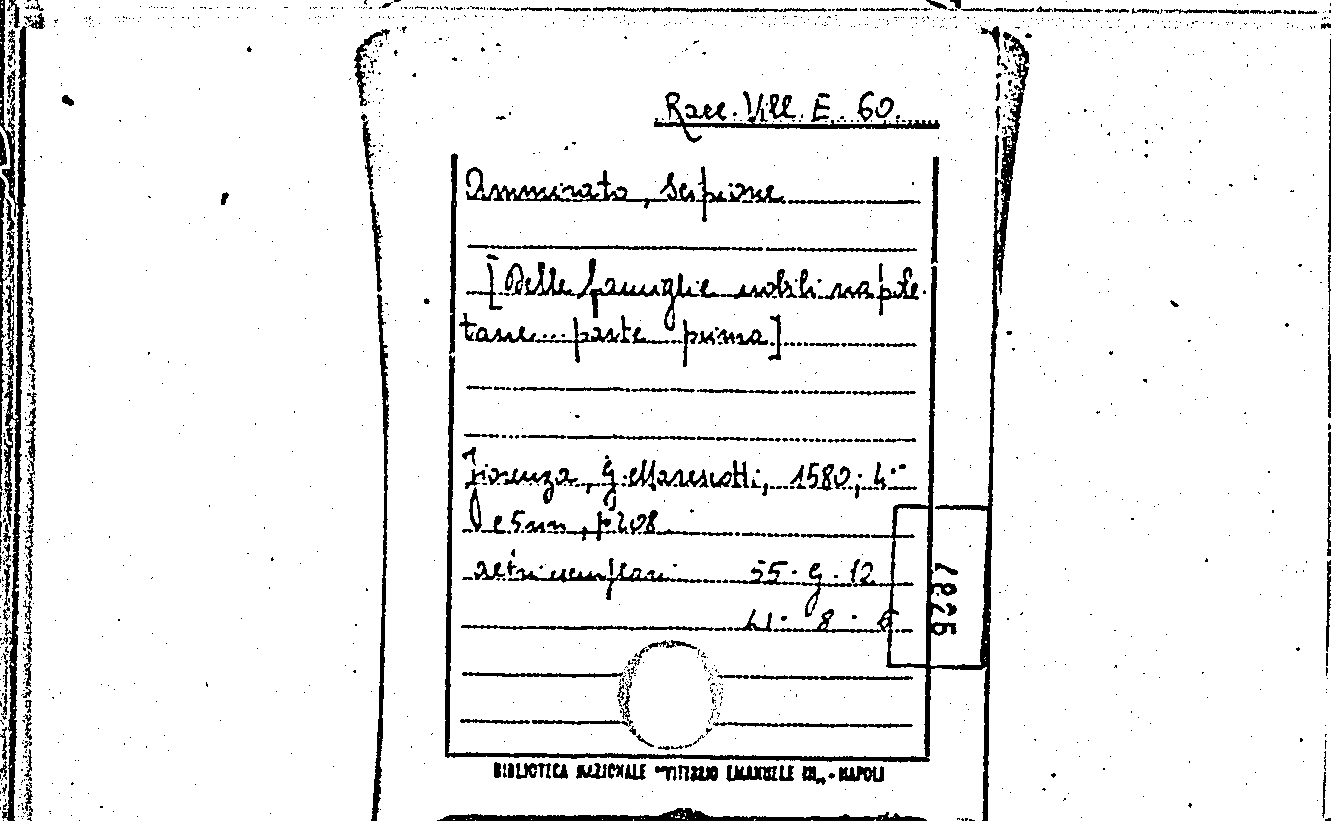 Racc. Vill. E. 60
Ammirato, Scipione
[Delle famiglie nobili napole-
tane... parte prima]
Fiorenza, G. Marescotti, 1580, 4°
p 208
altri esemplari 55. G. 12
BIBLIOTECA NAZIONALE "VITTORIO EMANUELE III" - NAPOLI